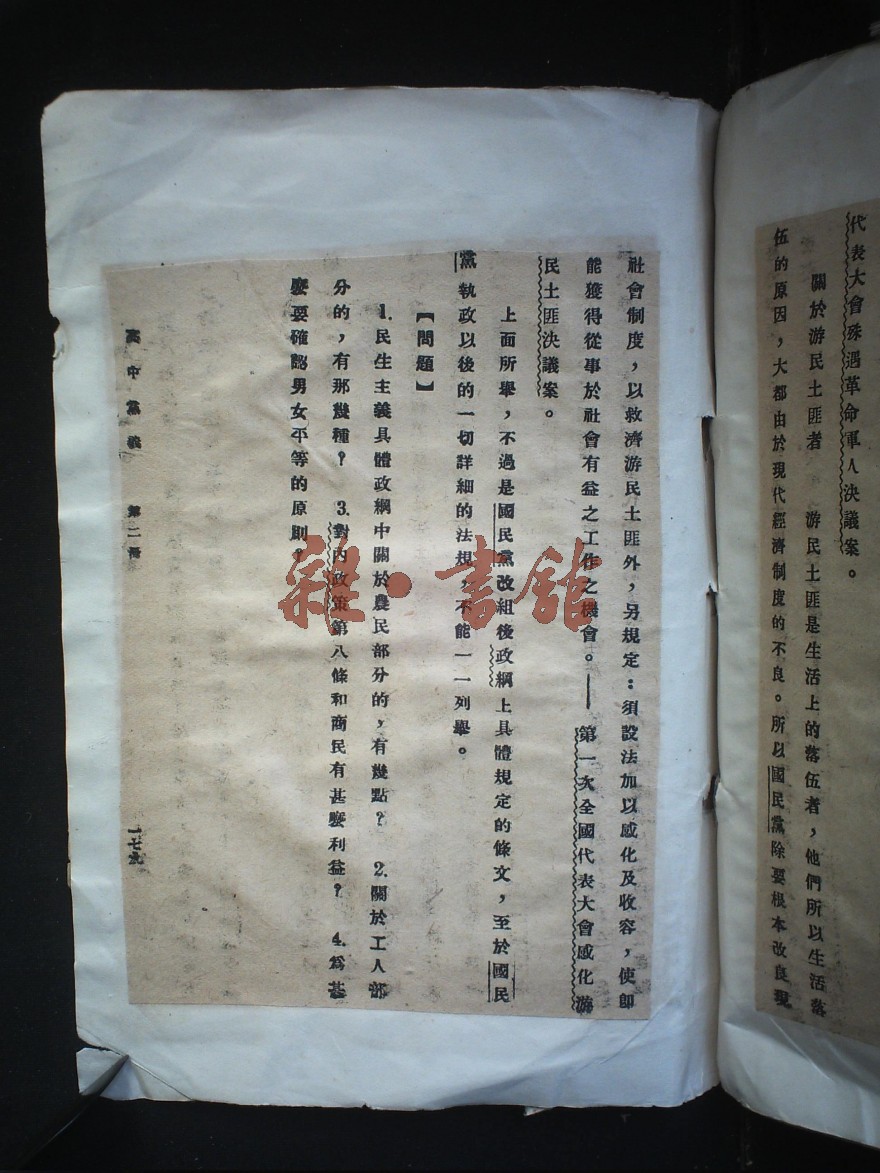 代表大會殊遇革命軍人決議案。
關於游民土匪者　游民土匪是生活上的落伍者，他們所以生活落
伍的原因，大都由於現代經濟制度的不良。所以國民黨除要根本改良現
社會制度，以救濟游民土匪外，另規定：須設法加以感化及收容，使卽
能獲得從事於社會有益之工作之機會。——第一次全國代表大會感化游
民土匪決議案。
上面所舉，不過是國民黨改組後政綱上具體規定的條文，至於國民
黨執政以後的一切詳細的法規，不能一一列舉。
【問題】
1.民生主義具體政綱中關於農民部分的，有幾點？　2.關於工人部
分的，有那幾種？　3.對內政策第八條和商民有甚麼利益？　4.爲甚
麼要確認男女平等的原則？
高中黨義　第二冊　一七九
雜·書館